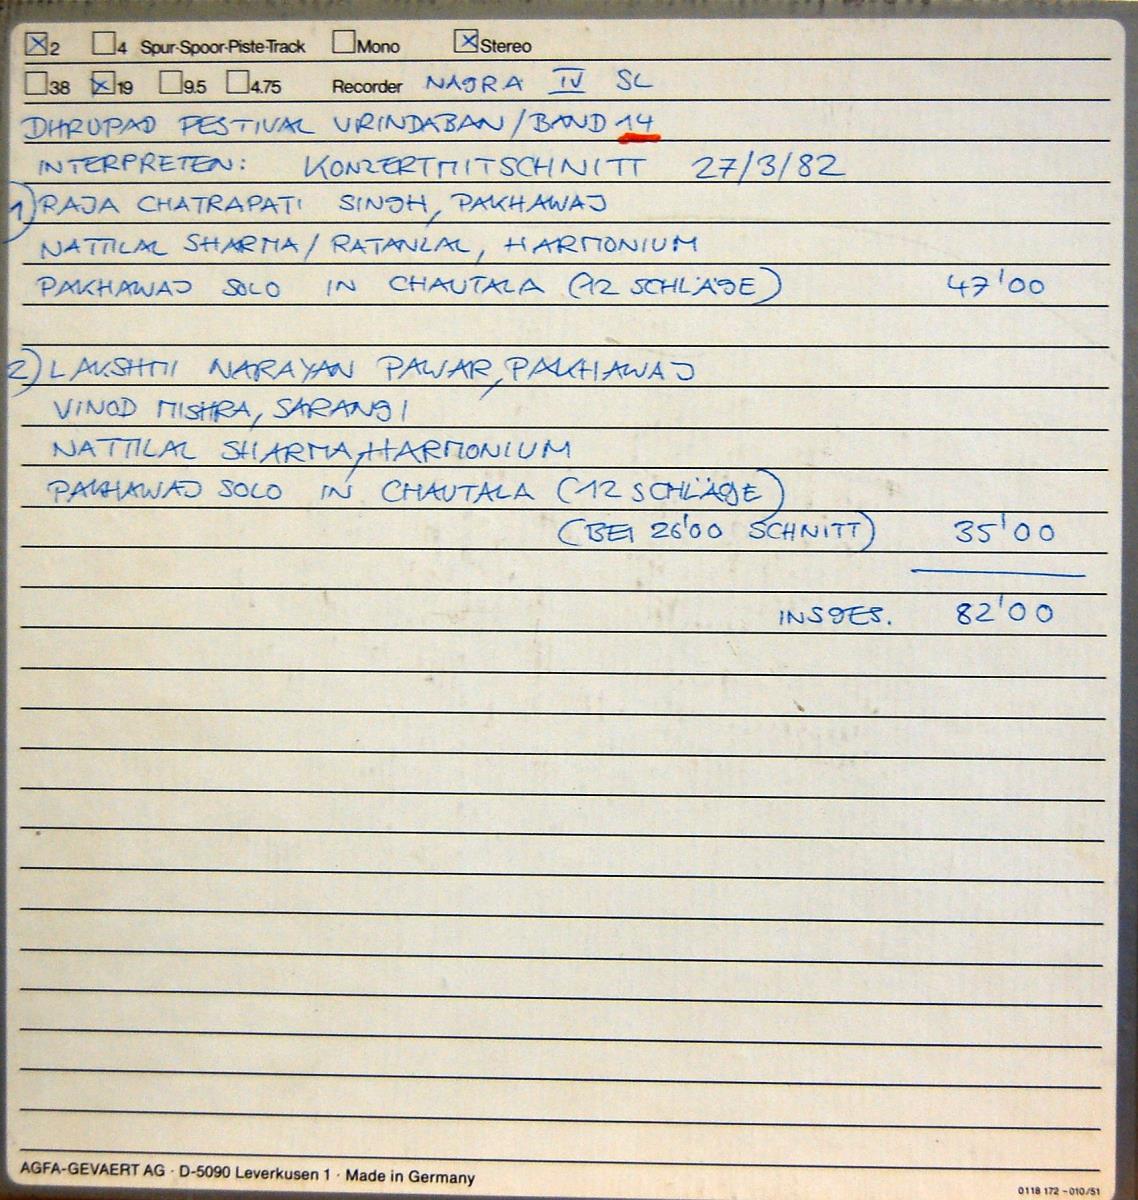 ☒2 ☐4 Spur-Spoor-Piste-Track ☐Mono ☒Stereo
☐38 ☒19 ☐9.5 ☐4.75 Recorder NAGRA IV SL
DHRUPAD FESTIVAL VRINDABAN/BAND 14
INTERPRETEN: KONZERTMITSCHNITT 27/3/82
1) RAJA CHATRAPATI SINGH, PAKHAWAJ
NATTILAL SHARMA/RATANLAL, HARMONIUM
PAKHAWAJ SOLO IN CHAUTALA (12 SCHLÄGE) 47'00
2) LAKSHMI NARAYAN PAWAR, PAKHAWAJ
VINOD MISHRA, SARANGI
NATTILAL SHARMA, HARMONIUM
PAKHAWAJ SOLO IN CHAUTALA (12 SCHLÄGE)
(BEI 26'00 SCHNITT) 35'00
INSGES. 82'00
AGFA-GEVAERT AG · D-5090 Leverkusen 1 · Made in Germany
0118 172 -010/51